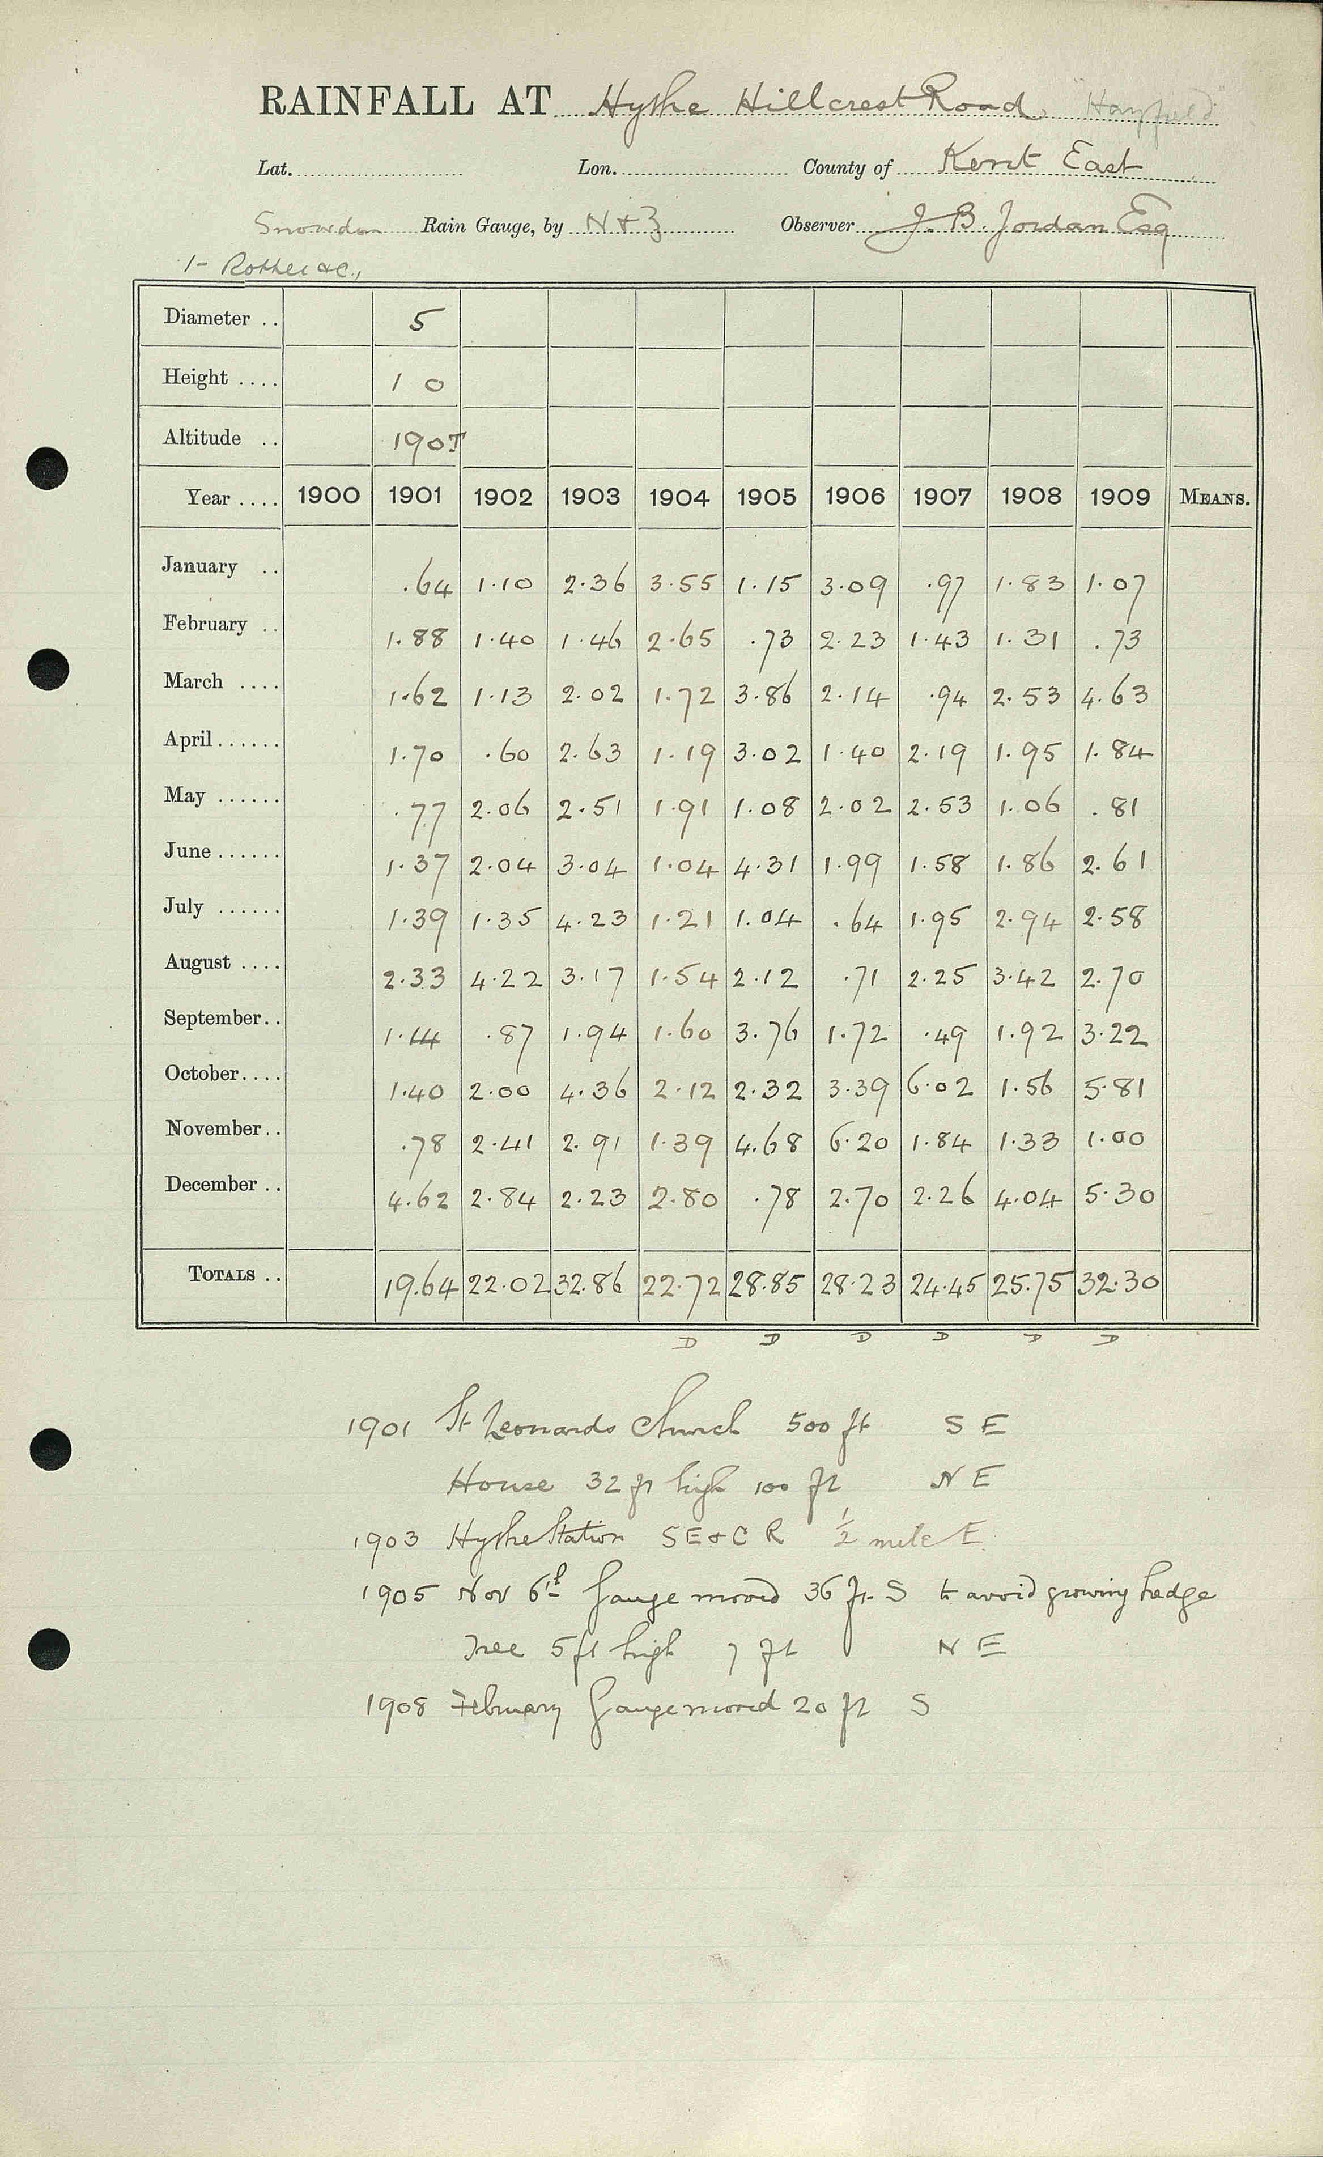 RAINFALL AT Hythe Hillcrest Road "Hayfield"
Lat. Lon. County of Kent East
Snowdon Rain Gauge, by N & Z Observer J. B. Jordan Esq
1- Rother &c.,
Diameter .. 5
Height .... 1 0
Altitude .. 190T
Year .... 1900 1901 1902 1903 1904 1905 1906 1907 1908 1909 MEANS.
January .. .64 1.10 2.36 3.55 1.15 3.09 .97 1.83 1.07
February .. 1.88 1.40 1.46 2.65 .73 2.23 1.43 1.31 .73
March .... 1.62 1.13 2.02 1.72 3.86 2.14 .94 2.53 4.63
April ...... 1.70 .60 2.63 1.19 3.02 1.40 2.19 1.95 1.84
May ...... .77 2.06 2.51 1.91 1.08 2.02 2.53 1.06 .81
June ...... 1.37 2.04 3.04 1.04 4.31 1.99 1.58 1.86 2.61
July ...... 1.39 1.35 4.23 1.21 1.04 .64 1.95 2.94 2.58
August .... 2.33 4.22 3.17 1.54 2.12 .71 2.25 3.42 2.70
September .. 1.14 .87 1.94 1.60 3.76 1.72 .49 1.92 3.22
October .... 1.40 2.00 4.36 2.12 2.32 3.39 6.02 1.56 5.81
November .. .78 2.41 2.91 1.39 4.68 6.20 1.84 1.33 1.00
December .. 4.62 2.84 2.23 2.80 .78 2.70 2.26 4.04 5.30
TOTALS .. 19.64 22.02 32.86 22.72 28.85 28.23 24.45 25.75 32.30
D D D D D D
1901 St Leonards Church 500 ft S E
House 32 ft high 100 ft N E
1903 Hythe Station SE & C R ½ mile E.
1905 Nov 6th Gauge moved 36 ft. S to avoid growing hedge
Tree 5 ft high 7 ft N E
1908 February Gauge moved 20 ft S